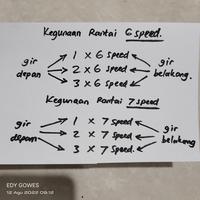 Kegunaan Rantai 6 speed.
gir depan
1 x 6 speed
2 x 6 speed
3 x 6 speed
gir belakang.
Kegunaan Rantai 7 speed
gir depan
1 x 7 speed
2 x 7 speed
3 x 7 speed.
gir belakang
EDY GOWES
12 Agu 2022 09:12